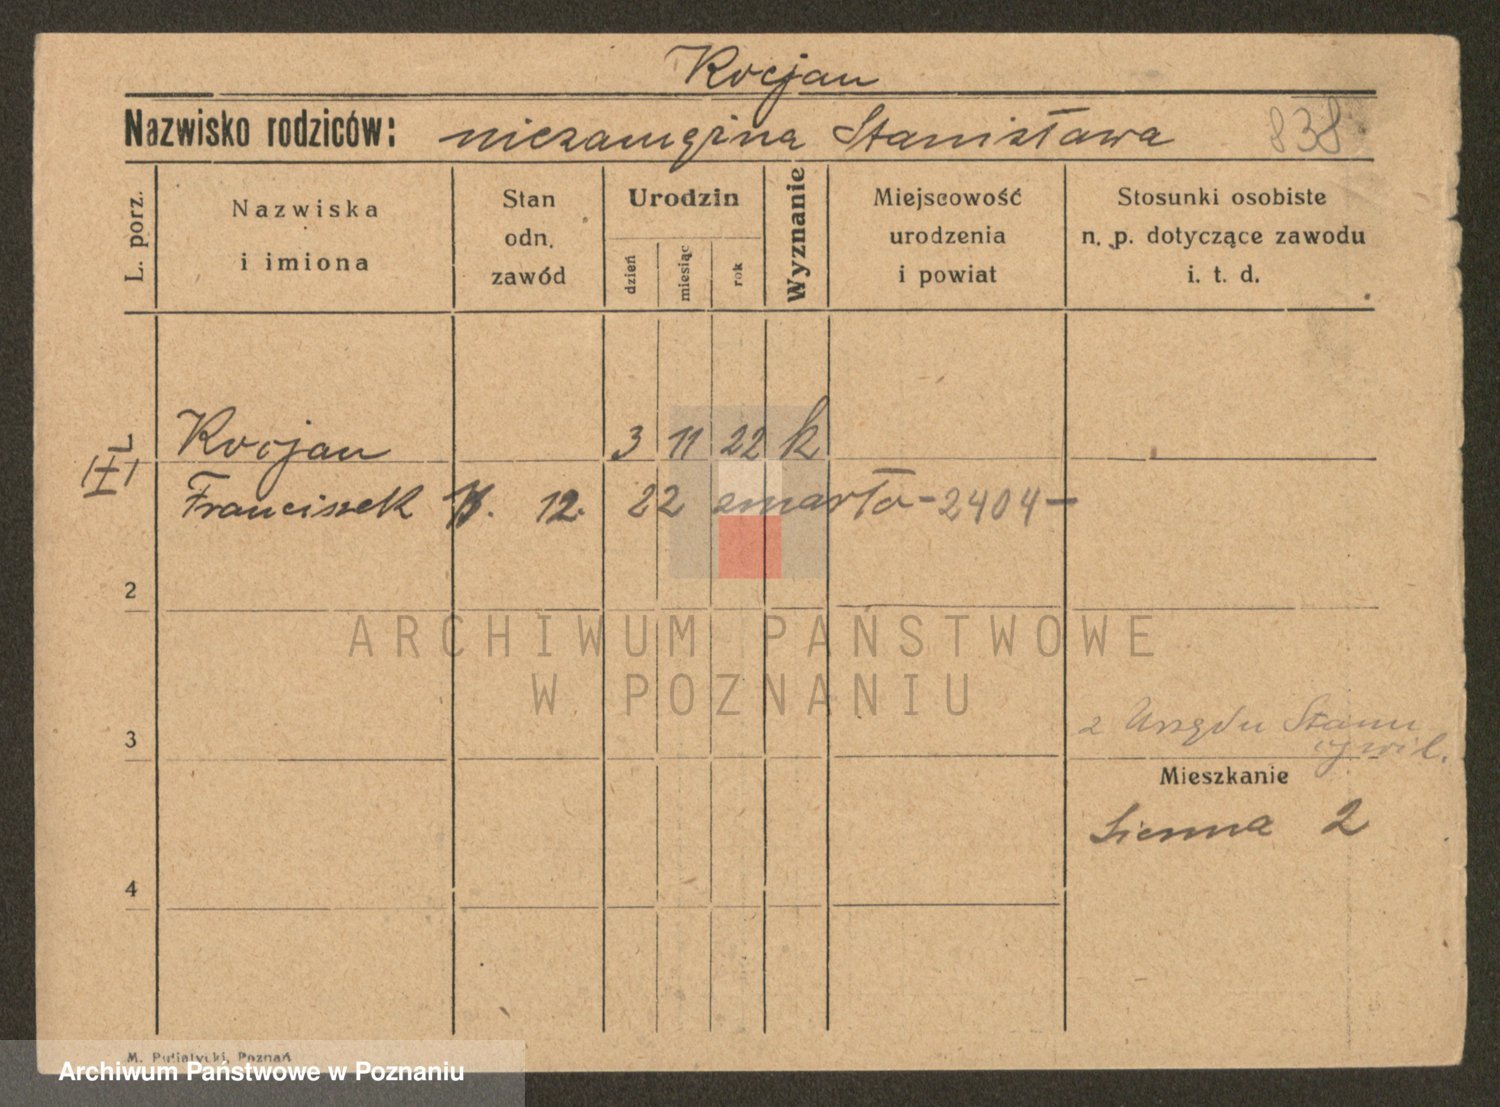 Kocjan
Nazwisko rodziców: niezamężna Stanisława 838
L. porz.
Nazwiska
i imiona
Stan
odn.
zawód
Urodzin
dzień
miesiąc
rok
Wyznanie
Miejscowość
urodzenia
i powiat
Stosunki osobiste
n. p. dotyczące zawodu
i. t. d.
Kocjan 3 11 22 k
Franciszek 12. 22 zmarło - 2404 -
2
3
z Urzędu Stanu
cywil.
Mieszkanie
Sienna 2
4
ARCHIWUM PAŃSTWOWE
W POZNANIU
M. Putiatycki, Poznań
Archiwum Państwowe w Poznaniu